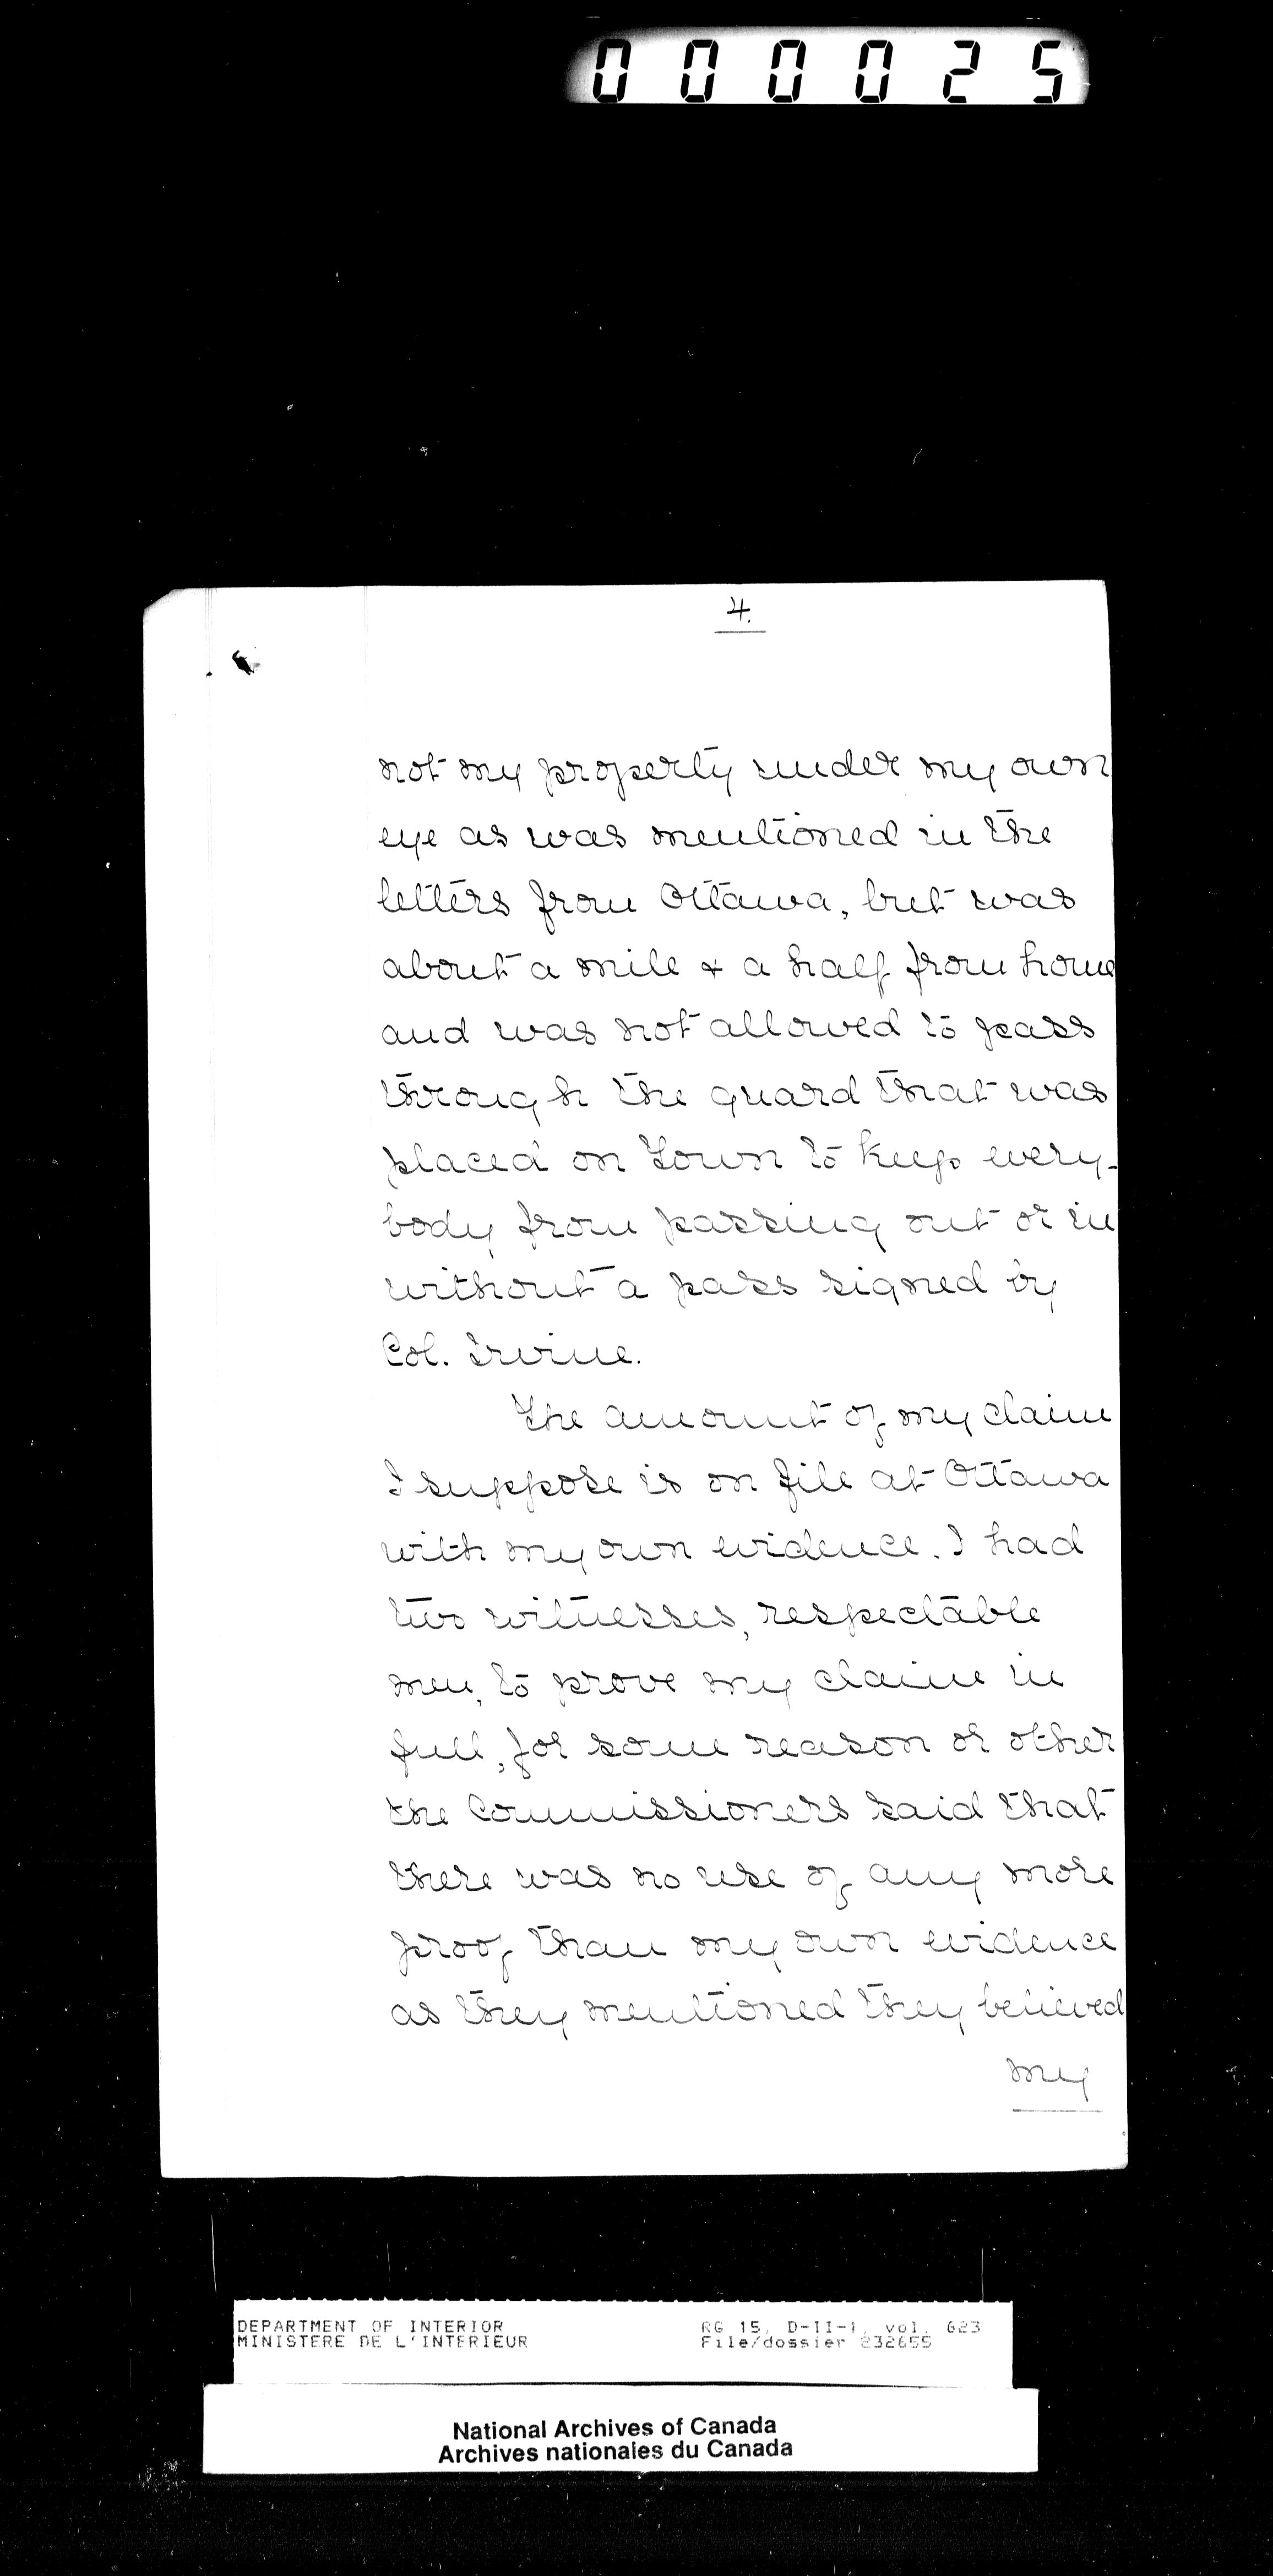 000025
4.
not my property under my own
eye as was mentioned in the
letters from Ottawa, but was
about a mile & a half from home
and was not allowed to pass
through the guard that was
placed on Town to keep every-
body from passing out or in
without a pass signed by
Col. Irvine.
The amount of my claim
I suppose is on file at Ottawa
with my own evidence. I had
two witnesses, respectable
men, to prove my claim in
full, for some reason or other
the Commissioners said that
there was no use of any more
proof than my own evidence
as they mentioned they believed
my
DEPARTMENT OF INTERIOR RG 15, D-II-1, vol. 623
MINISTERE DE L'INTERIEUR File/dossier 232655
National Archives of Canada
Archives nationales du Canada